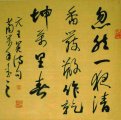 忽然一夜清
香發散作乾
坤萬里春
元王冕詩句